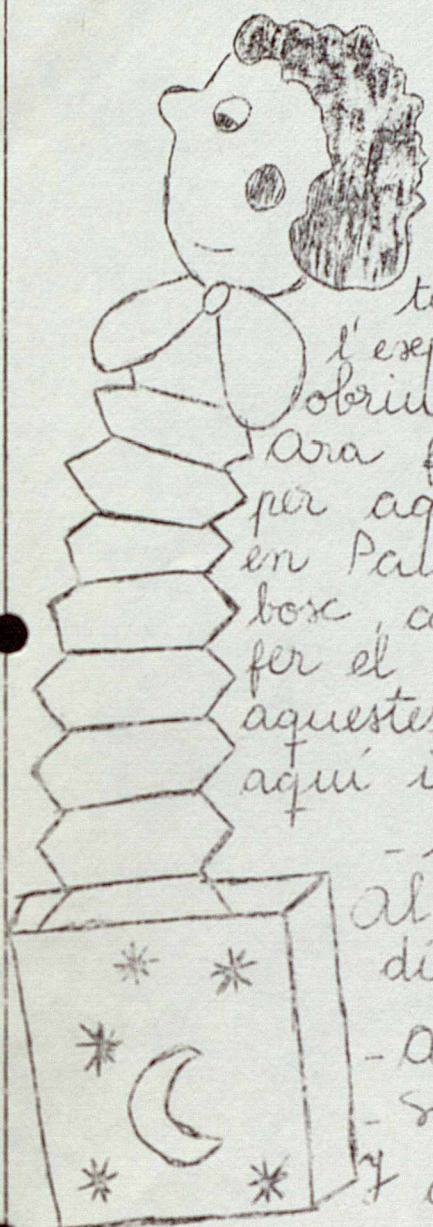 l'esep
obriu
Ara
per aq
en Pau
bosc, a
fer el
aquestes
aquí i
Al
di
- a
- S